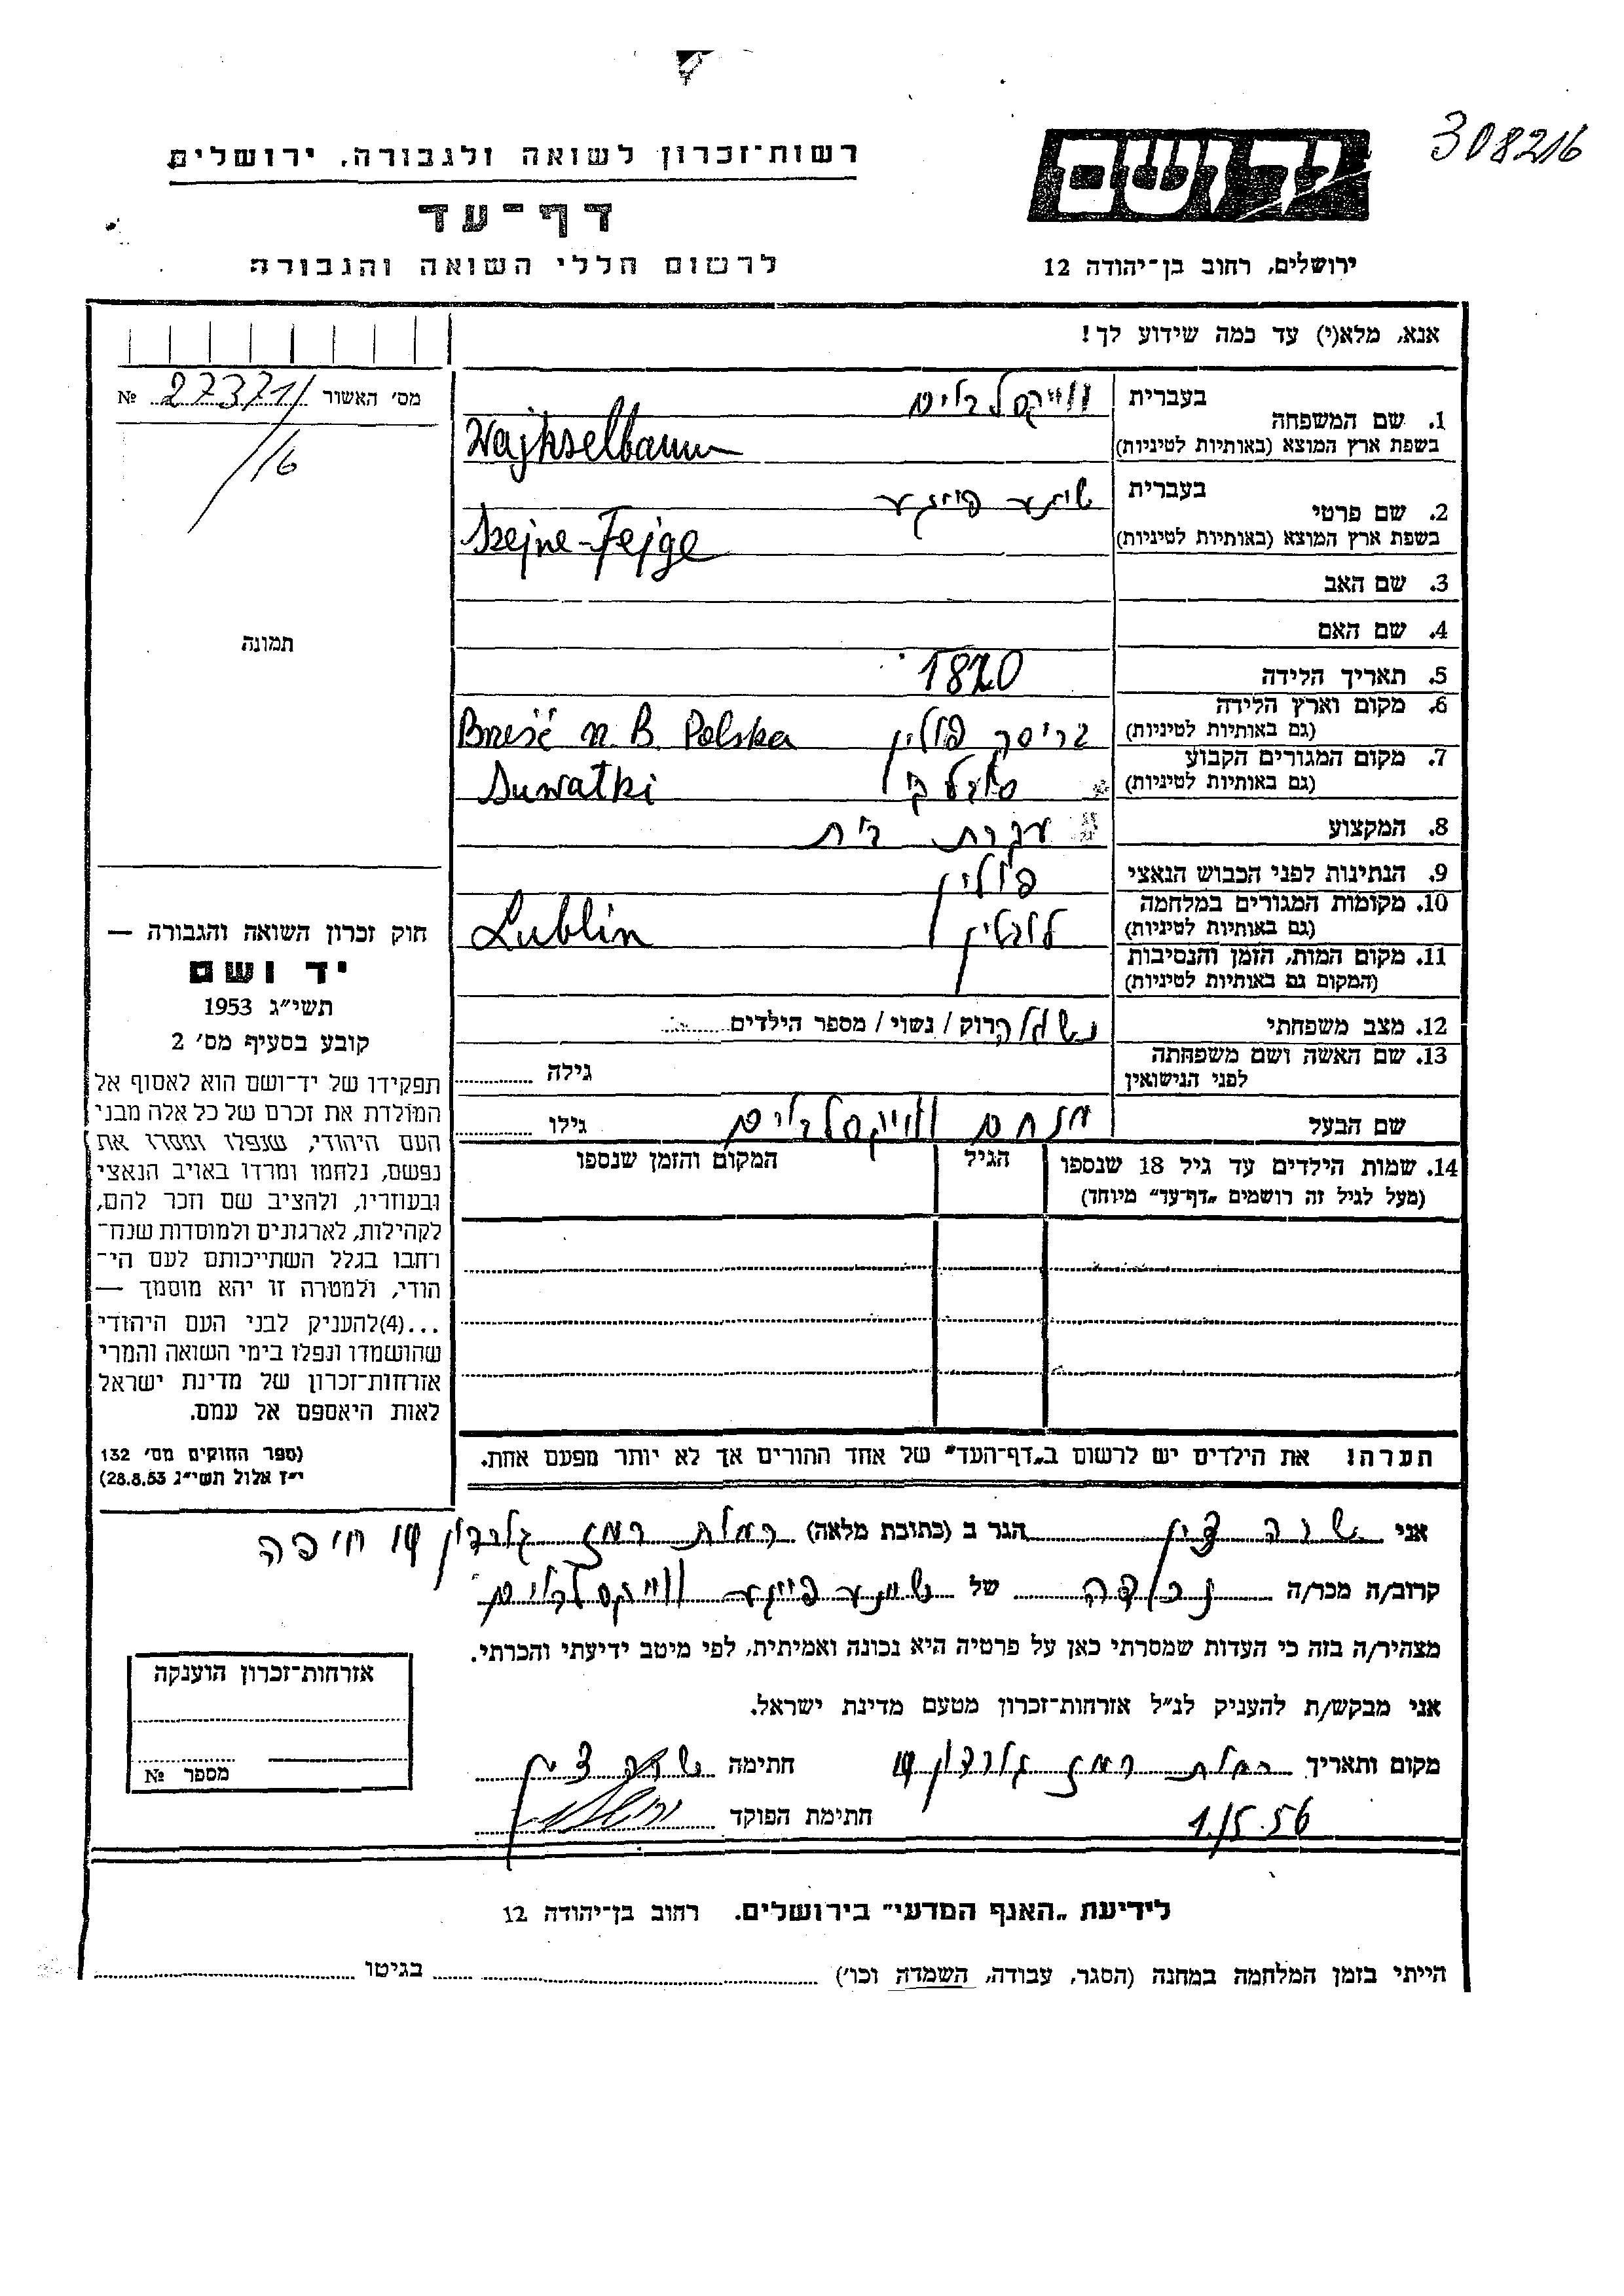 308216
יד ושם
רשות־זכרון לשואה ולגבורה, ירושלים
דף־עד
ירושלים, רחוב בן־יהודה 12
לרשום חללי השואה והגבורה
אנא, מלא(י) עד כמה שידוע לך!
מס׳ האשור 27371/ №
/16
תמונה
1. שם המשפחה
בעברית ווייקסלבוים
בשפת ארץ המוצא (באותיות לטיניות) Wajhselbaum
2. שם פרטי
בעברית שיינע פייגע
בשפת ארץ המוצא (באותיות לטיניות) Szejne-Fejge
3. שם האב
4. שם האם
5. תאריך הלידה
6. מקום וארץ הלידה
(גם באותיות לטיניות) בריסק פולין Brześć n. B. Polska
7. מקום המגורים הקבוע
(גם באותיות לטיניות) סובלקי Suwałki
8. המקצוע עקרת בית
9. הנתינות לפני הכבוש הנאצי פולין
10. מקומות המגורים במלחמה
(גם באותיות לטיניות) לובלין Lublin
11. מקום המות, הזמן והנסיבות
(המקום גם באותיות לטיניות)
12. מצב משפחתי רוק / נשוי / מספר הילדים
13. שם האשה ושם משפחתה
לפני הנישואין גילה
שם הבעל מנחם ווייקסלבוים גילו
14. שמות הילדים עד גיל 18 שנספו הגיל המקום והזמן שנספו
(מעל לגיל זה רושמים „דף־עד” מיוחד)
הערה! את הילדים יש לרשום ב„דף־העד” של אחד ההורים אך לא יותר מפעם אחת.
חוק זכרון השואה והגבורה —
יד ושם
תשי״ג 1953
קובע בסעיף מס׳ 2
תפקידו של יד־ושם הוא לאסוף אל
המולדת את זכרם של כל אלה מבני
העם היהודי, שנפלו ומסרו את
נפשם, נלחמו ומרדו באויב הנאצי
ובעוזריו, ולהציב שם וזכר להם,
לקהילות, לארגונים ולמוסדות שנח־
רבו בגלל השתייכותם לעם הי־
הודי, ולמטרה זו יהא מוסמך —
...(4) להעניק לבני העם היהודי
שהושמדו ונפלו בימי השואה והמרי
אזרחות־זכרון של מדינת ישראל
לאות היאספם אל עמם.
(ספר החוקים מס׳ 132
י״ז אלול תשי״ג 28.8.53)
אני שרה ציין הגר ב (כתובת מלאה) רמת רמז גורדון 19 חיפה
קרוב/ה מכר/ה נכדה של שיינע פייגע ווייקסלבוים
מצהיר/ה בזה כי העדות שמסרתי כאן על פרטיה היא נכונה ואמיתית, לפי מיטב ידיעתי והכרתי.
אני מבקש/ת להעניק לנ״ל אזרחות־זכרון מטעם מדינת ישראל.
מקום ותאריך רמת רמז גורדון 19 חתימה שרה ציין
1.5.56 חתימת הפוקד
אזרחות־זכרון הוענקה
מספר №
לידיעת „האנף המדעי” בירושלים. רחוב בן־יהודה 12
הייתי בזמן המלחמה במחנה (הסגר, עבודה, השמדה וכו׳) בגיטו